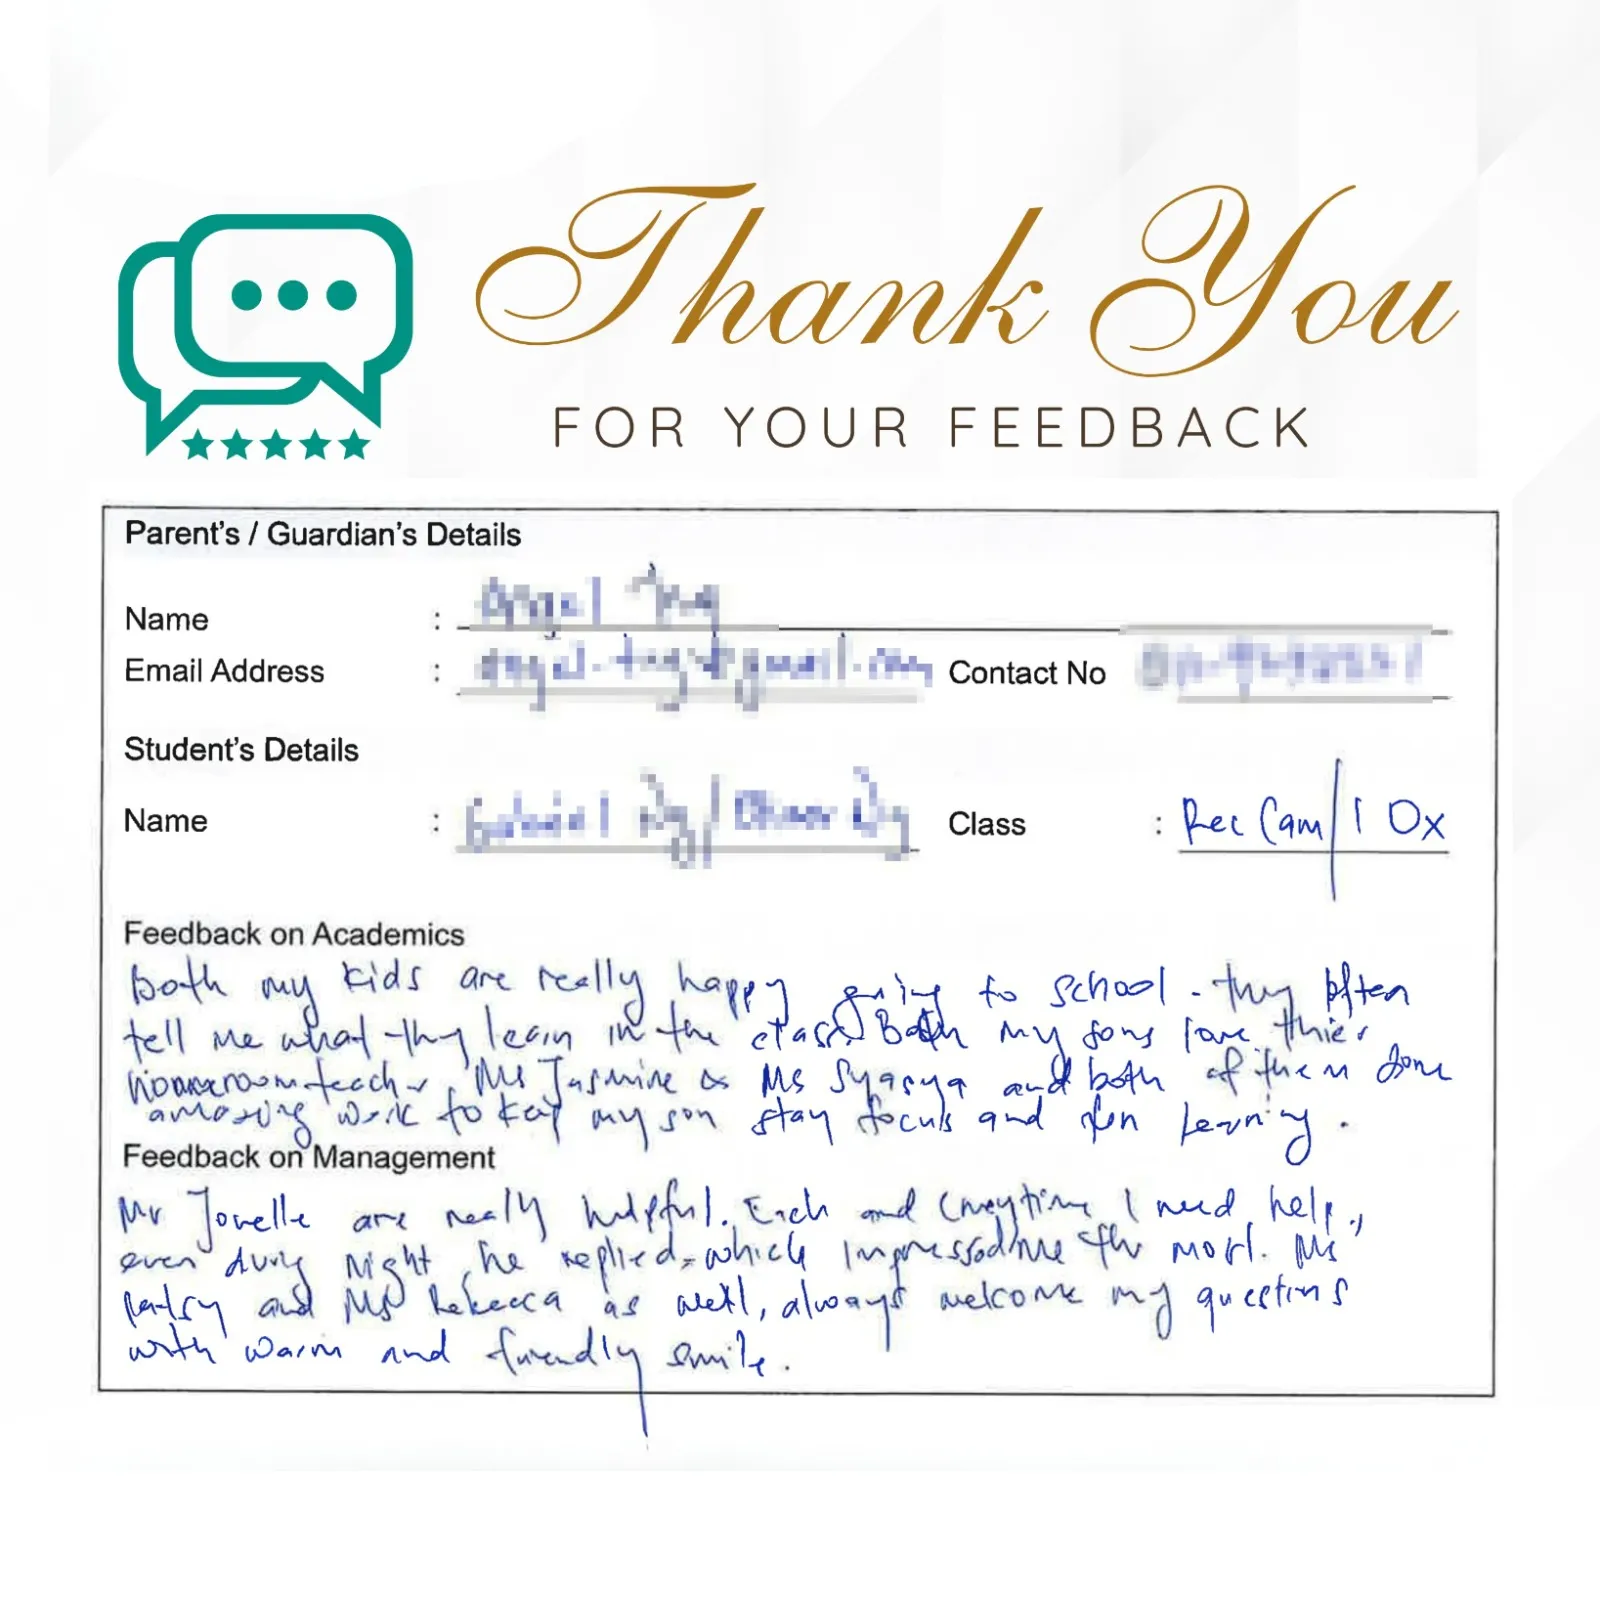 Thank You
FOR YOUR FEEDBACK
Parent's / Guardian's Details
Name :
Email Address : Contact No
Student's Details
Name : Class : Rec Cam/1 Ox
Feedback on Academics
Both my kids are really happy going to school. They often
tell me what they learn in the class. Both my sons love thier
homeroom teacher, Ms Jasmine & Ms Syasya and both of them done
amazing work to keep my son stay focus and learning.
Feedback on Management
Mr Jonelle are really helpful. Each and everytime I need help,
even during night, he replied, which impressed me the most. Ms
Patsy and Ms Rebecca as well, always welcome my questions
with warm and friendly smile.